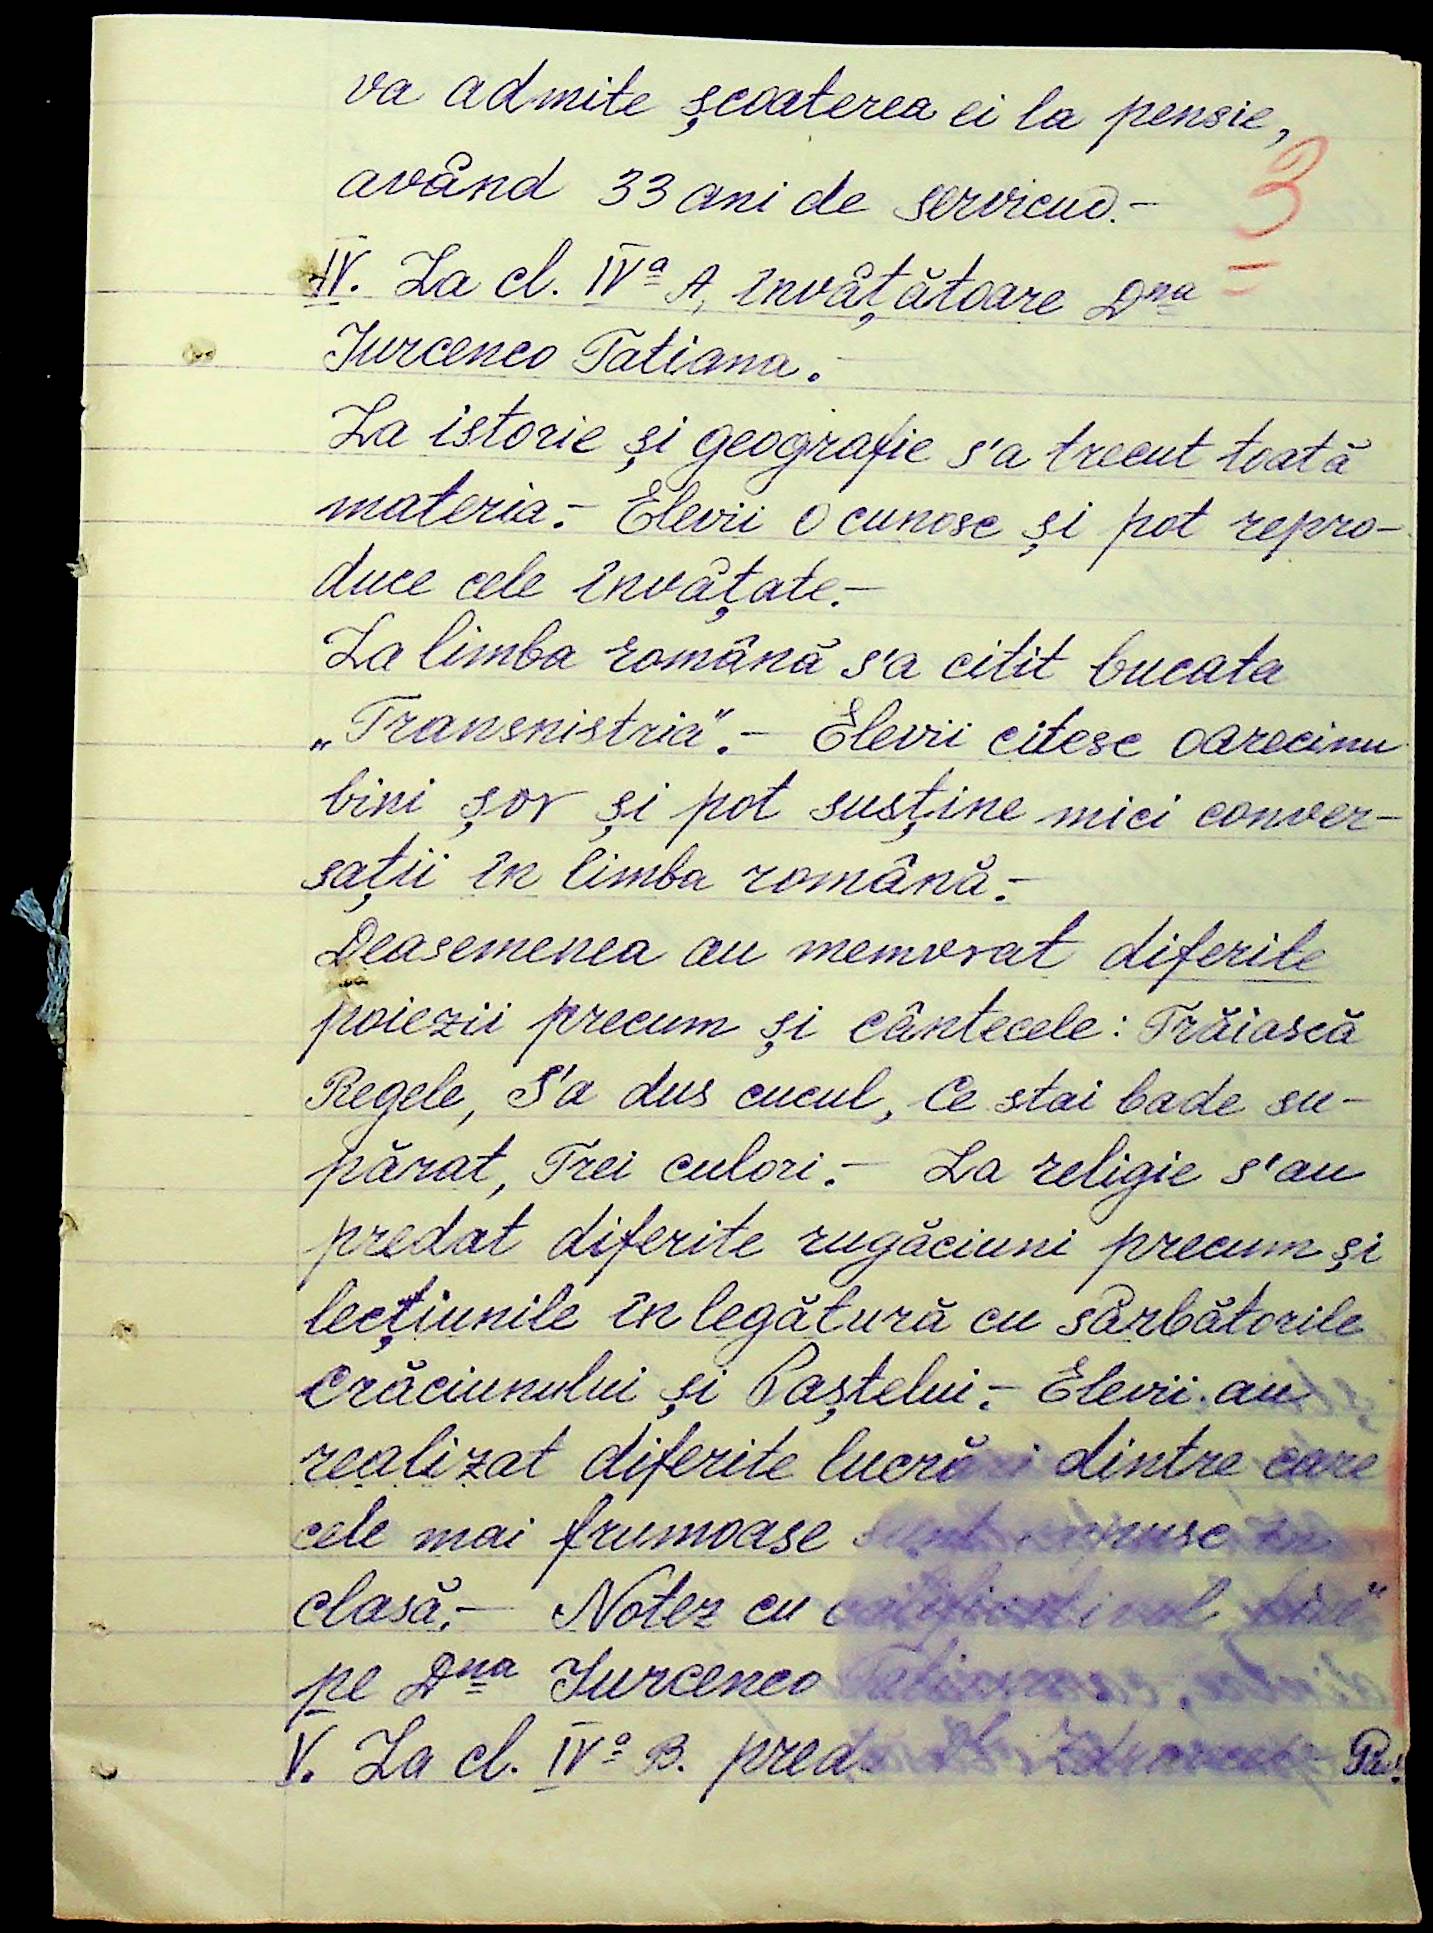 va admite școaterea ei la pensie,
3
având 33 ani de serviciu.-
IV. La cl. IVª A, învâțătoare Dna
Jurcenco Tatiana.-
La istorie și geografie s'a trecut toată
materia.- Elevii o cunosc și pot repro-
duce cele învâțate.-
La limba română s'a citit bucata
„Transnistria".- Elevii citesc oarecinu
bini șor și pot susține mici conver-
sații în limba română.-
Deasemenea au memorat diferite
poiezii precum și cântecele: Trăiască
Regele, S'a dus cucul, Ce stai bade su-
părat, Trei culori.- La religie s'au
predat diferite rugăciuni precum și
lecțiunile în legătură cu sârbătorile
Crăciunului și Paștelui.- Elevii au
realizat diferite lucrări dintre care
cele mai frumoase sunt expuse în
clasă.- Notez cu calificativul „bine"
pe Dna Jurcenco Tatiana.
V. La cl. IVª B. predă